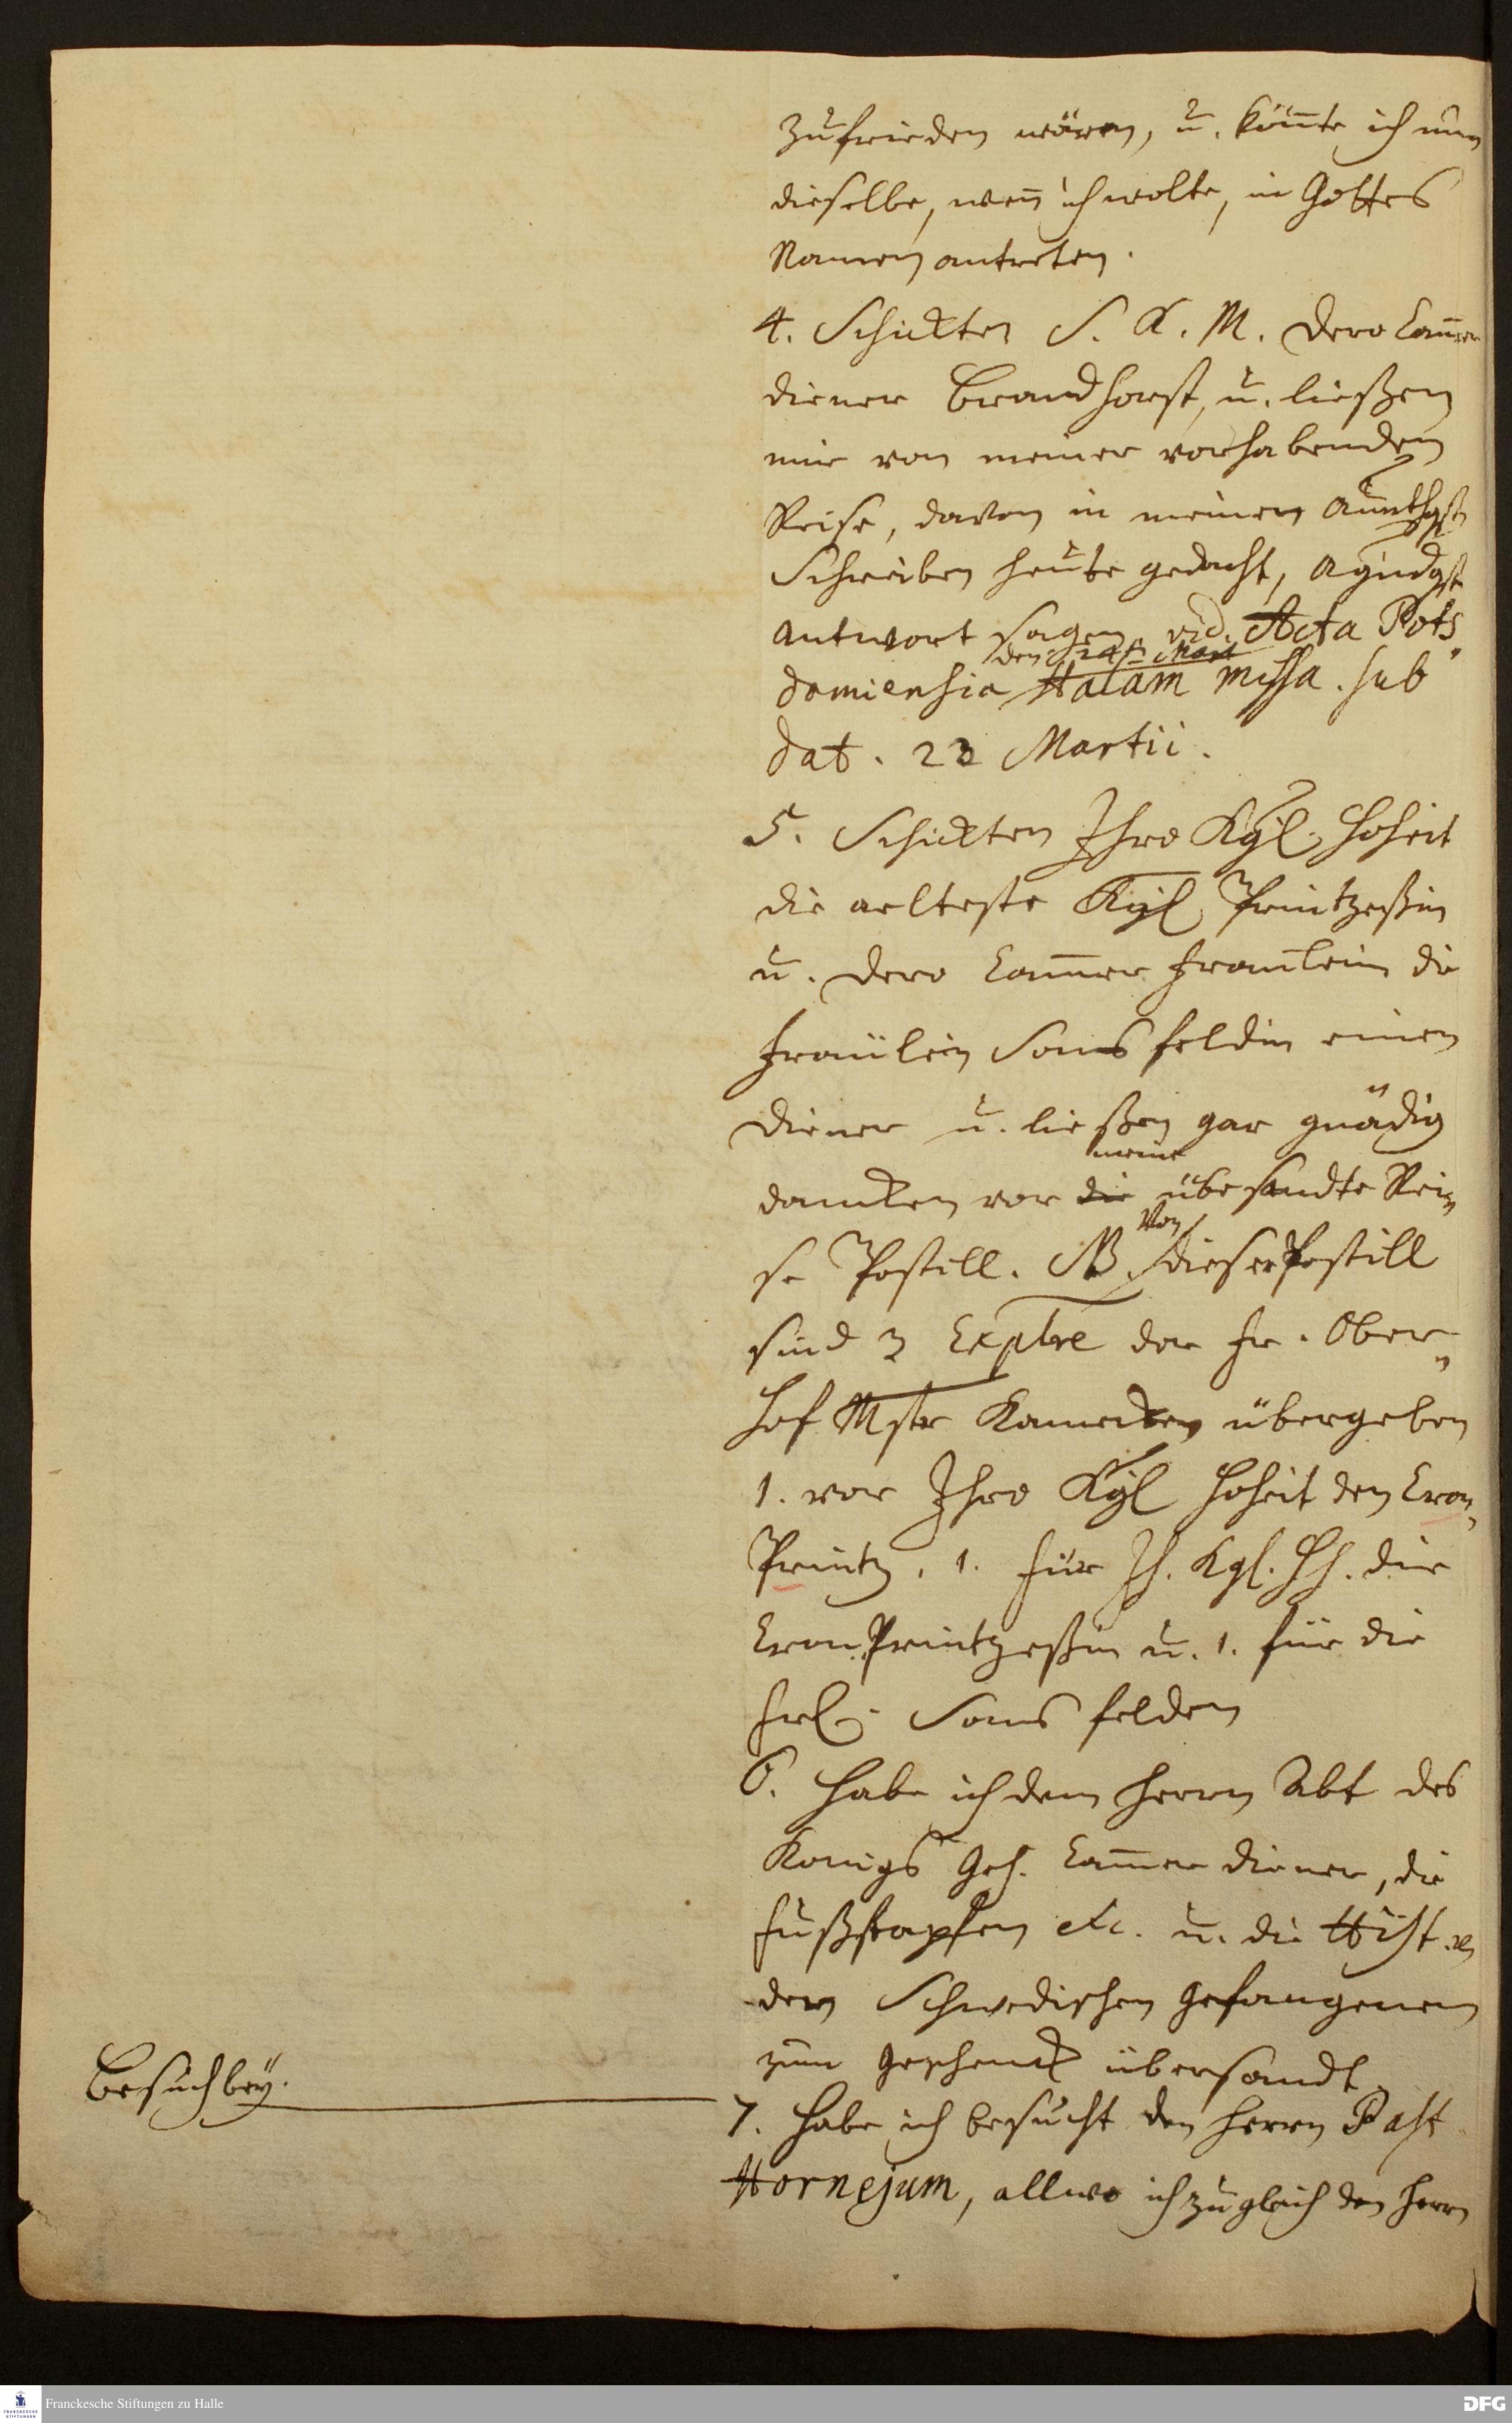 zufrieden wären, u. könte ich nun
dieselbe, wenn ich wolte, in Gottes
Namen antreten.
4. Schickten S. K. M. dero Cammer
diener Brandhorst, u. ließen
mir von meiner vorhabenden
Reise, davon in meinem
Schreiben heute gedacht,
antwort sagen. vid. Acta Pots
den 24st. Mart
damiensia Halam missa. sub
dat. 23 Martii.
5. Schickten Ihro Kgl. Hoheit
die aelteste Kgl Printzeßin
u. dero Cammer Fraulein die
Fraülein Sonsfeldin einen
diener u. ließen gar gnädig
meine
dancken vor die übersandte Rei„
se Postill. NB. Von dieser Postill
sind 3 Explre der Fr. Ober„
Hof Mstr Kamecken übergeben
1. vor Ihro Kgl Hoheit den Cron„
Printz, 1. für Ih. Kgl. Hh. die
Cron Printzeßin u. 1. für die
Frl. Sonsfelden
6. Habe ich dem Herrn Abt des
Konigs Geh. Cammer diener, die
Fußstapfen etc. u. die Hist.
der Schwedischen Gefangenen
zum Geschenck übersandt.
Besuch bey.
7. Habe ich besucht den Herrn Past.
Hornejum, allwo ich zugleich den Herrn
Franckesche Stiftungen zu Halle
DFG